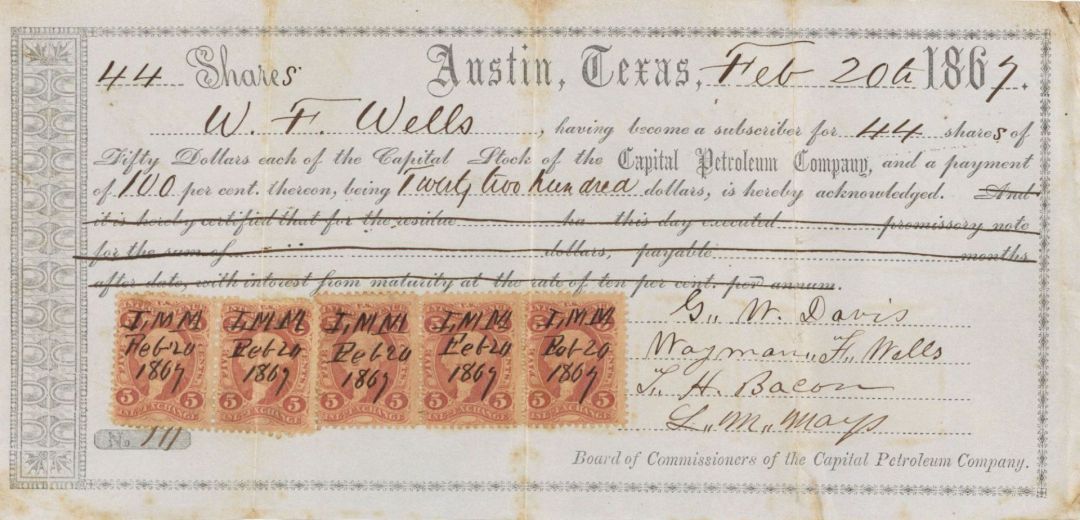 44 Shares Austin, Texas, Feb 20th 1867.
W. F. Wells, having become a subscriber for 44 shares of
Fifty Dollars each of the Capital Stock of the Capital Petroleum Company, and a payment
of 100 per cent. thereon, being Twenty two hundred dollars, is hereby acknowledged. And
it is hereby certified that for the residue ha this day executed promissory note
for the sum of dollars, payable months
after date, with interest from maturity at the rate of ten per cent. per annum.
I,M M I,M M I,M M I,M M I,M M
Feb 20 Feb 20 Feb 20 Feb 20 Feb 20
1867 1867 1867 1867 1867
5 5 5 5 5 5 5 5 5 5
G. W. Davis
Wayman F. Wells
T. H. Bacon
L. M. Mays
No. 111
Board of Commissioners of the Capital Petroleum Company.